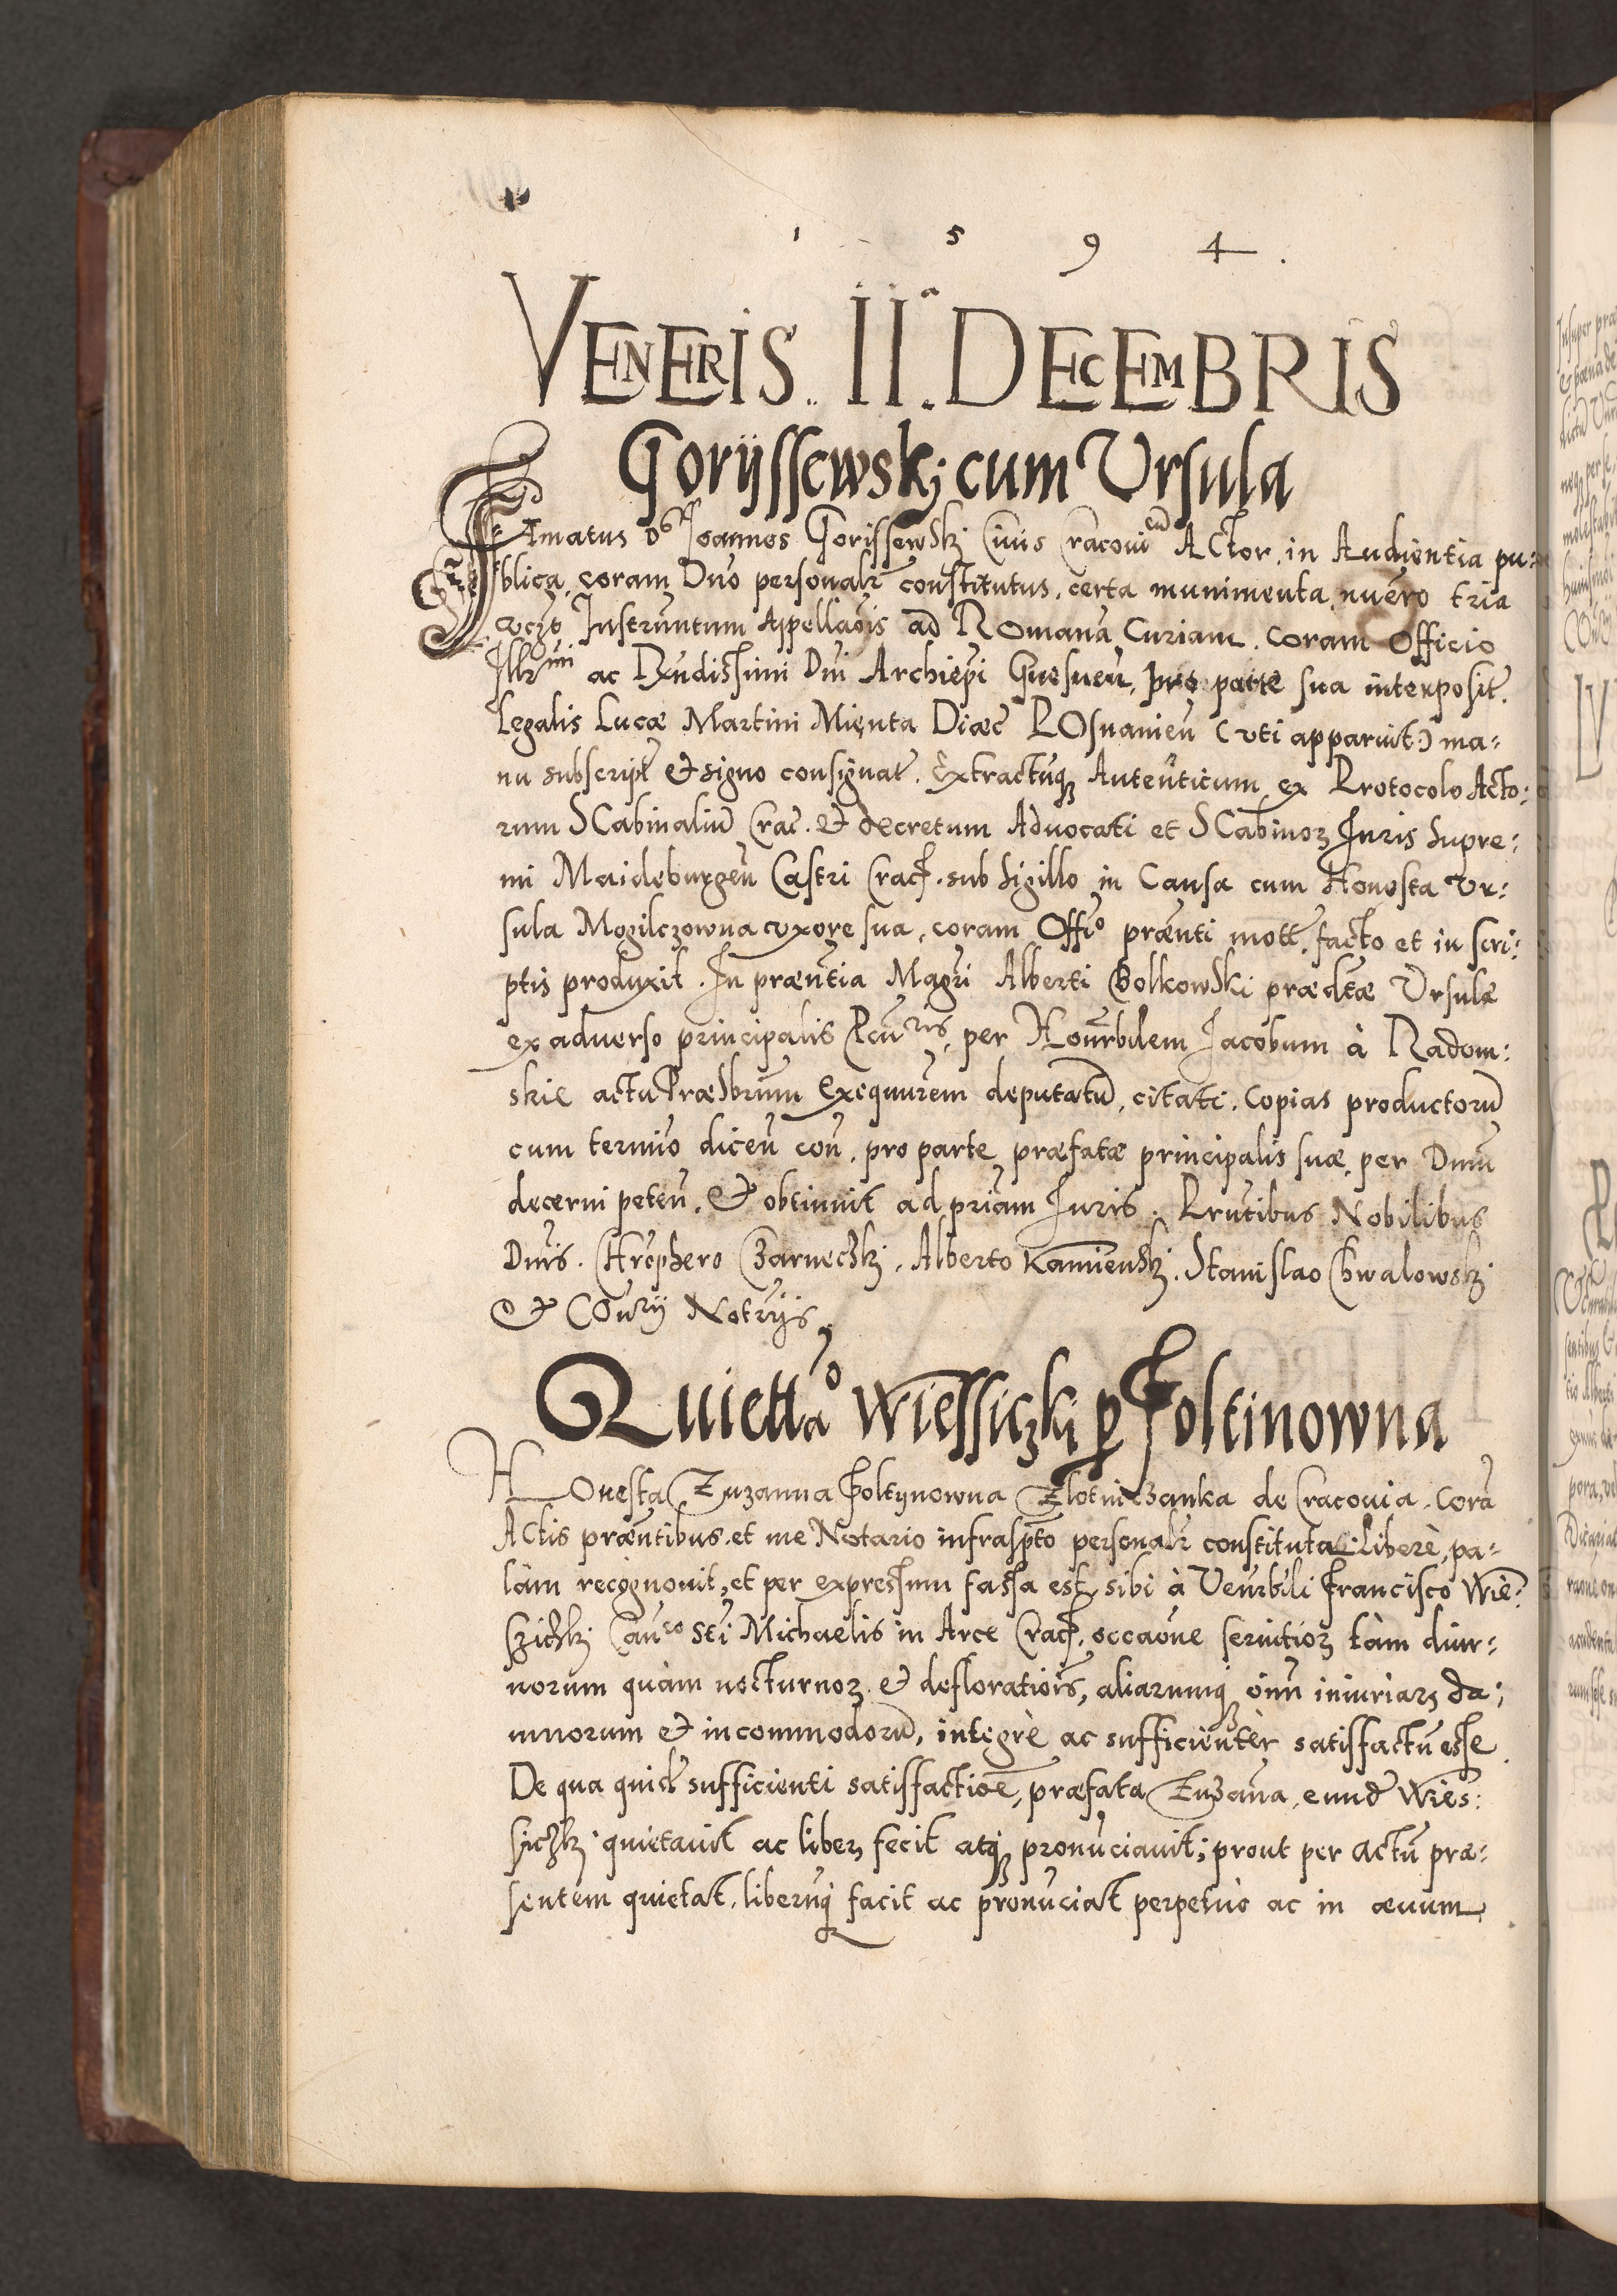 1 5 9 4.
VENERIS. II.ᵃ DECEMBRIS
Gorijssewskj cum Vrsula
Famatus D⁹ Joannes Gorissewskj Ciuis Cracouień Actor, in Audientia pu-
blica, coram Dno personalr constitutus, certa munimenta, nuero tria
vczt Instruntum Appellaois ad Romanā Curiam. coram Officio
Illrᵐⁱ ac Rxndissimi Dni Archiepi Gnesneń, pro parte sua interposit̃.
Legalis Lucæ Martini Mienta Diæc̃ Posnanień (vti apparuit:) ma-
nu subscript̃ et signo consignat̃. Extractūqꝫ Autenticum ex Protocolo Acto-
rum SCabinaliũ Crac̃. et decretum Aduocati et SCabinoꝝ Juris Supre-
mi Maideburgeń Castri Crac̃. sub Sigillo in Causa cum Honesta Vr-
sula Mogilczowna vxore sua, coram Offio præñti mott̃. facto et in scri-
ptis produxit. In præñtia Magri Alberti Bolkowski prædtæ Vrsulæ
ex aduerso principalis Pcuʳⁱˢ, per Honrbilem Jacobum à Radom-
skie actu Præsbrum Exequurem deputatũ, citati. Copias productorũ
cum termino diceń coń, pro parte præfatæ principalis suæ, per Dnm̃
decerni peteń. et obtinuit ad priam Juris. Prñtibus Nobilibus
Dnis. Chrophero Czarneczkj, Alberto Kamienskj. Stanislao Chwalowskj
et Couʳij Notrijs.
Quiettaº Wiessiczkj ꝑ Foltinowna
HOnesta Zuzanna Foltynowna Zlotniczanka de Cracouia. Corā
Actis præñtibus et me Notario infraspto personalr constituta Liberè, pa-
làm recognouit, et per expressum fassa est, sibi à Venrbili Francisco Wie-
szickj Cauᶜᵒ Sti Michaelis in Arce Crac̃. occaone seruitioꝝ tàm diur-
norum quàm nocturnoꝝ et deflorationis, aliarumqꝫ oīm iniuriaꝝ da-
mnorum et incommodorũ, integrè ac sufficientèr satisfactũ esse
De qua quid̃ sufficienti satisfactioē, præfata Zuzaña, eund̃ Wies-
siczkj quietauit ac liberꝫ fecit atqꝫ pronũciauit; prout per actũ præ-
sentem quietat, liberuqꝫ facit ac pronũciat perpetuò ac in æuum